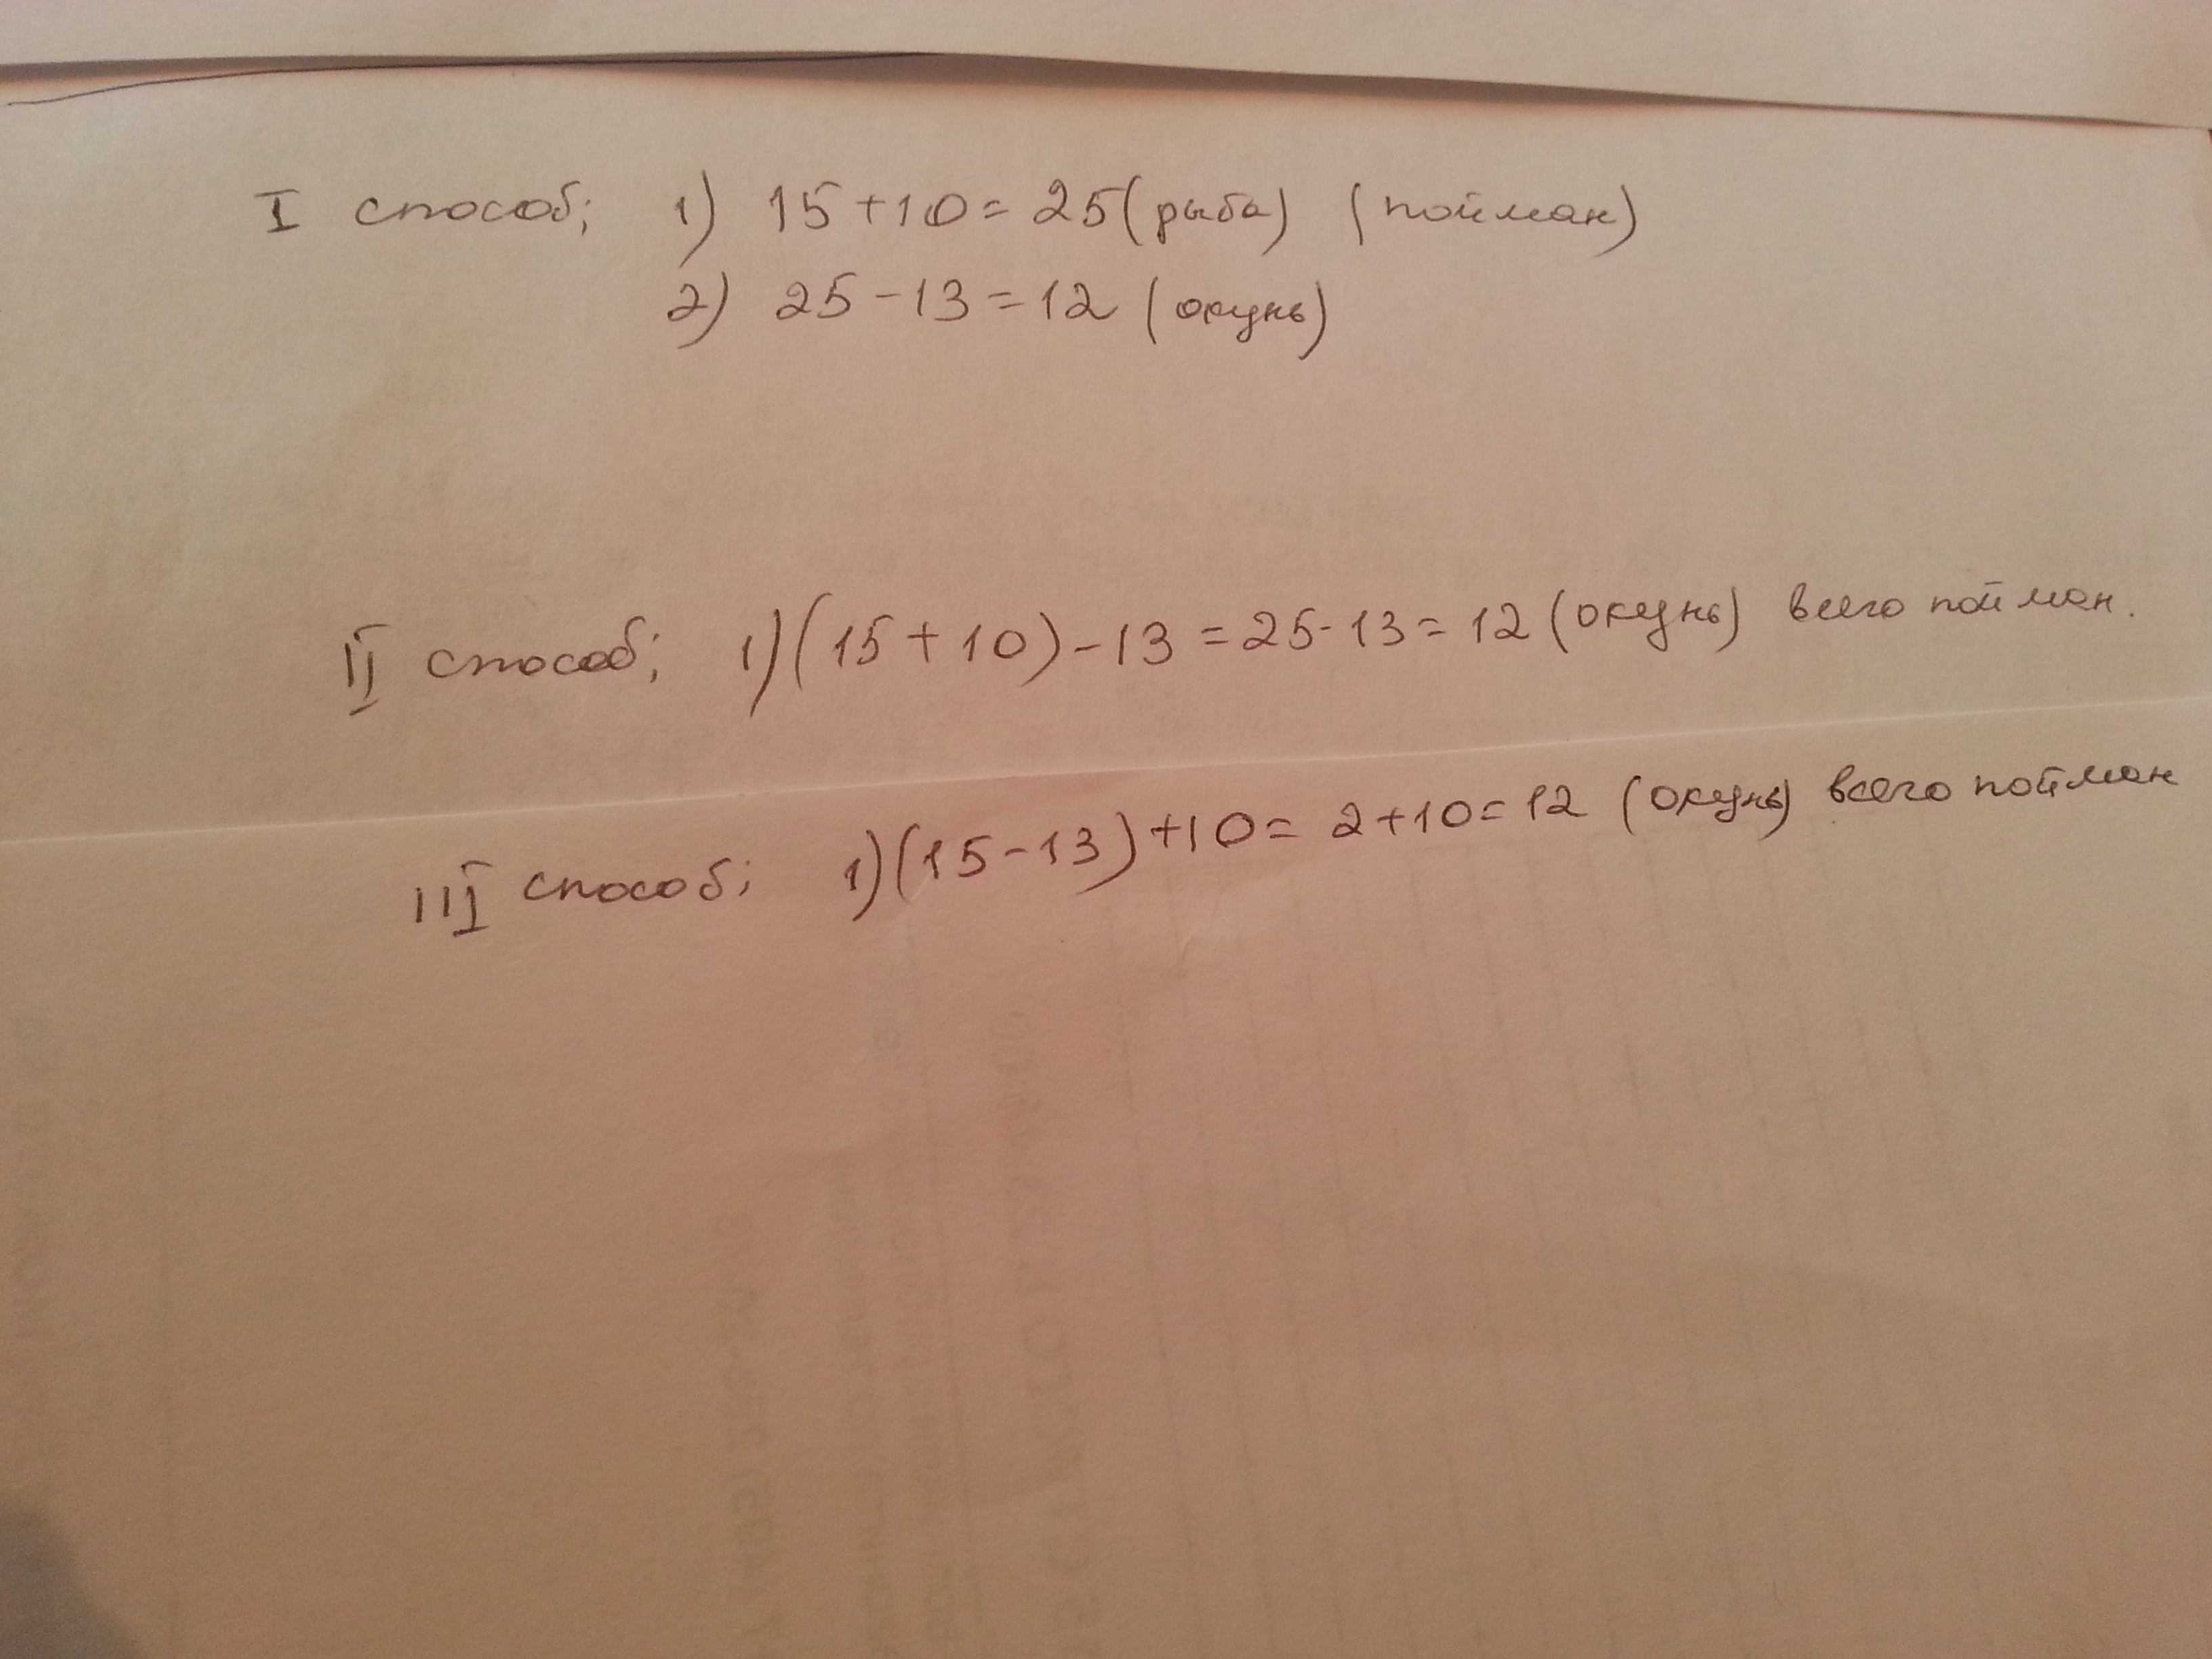 I способ; 1) 15+10=25(рыба) (пойман)
2) 25-13=12 (окунь)
II способ; 1)(15+10)-13=25-13=12(окунь) всего пойман.
III способ; 1)(15-13)+10=2+10=12 (окунь) всего пойман